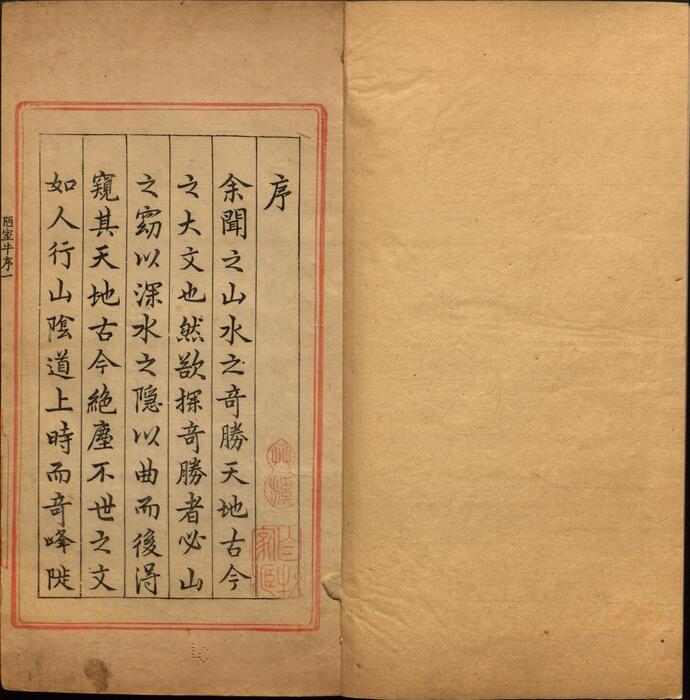 序
余聞之山水之奇勝天地古今
之大文也然欲探奇勝者必山
之窈以深水之隱以曲而後得
窺其天地古今絶塵不世之文
如人行山陰道上時而奇峰陡
序一